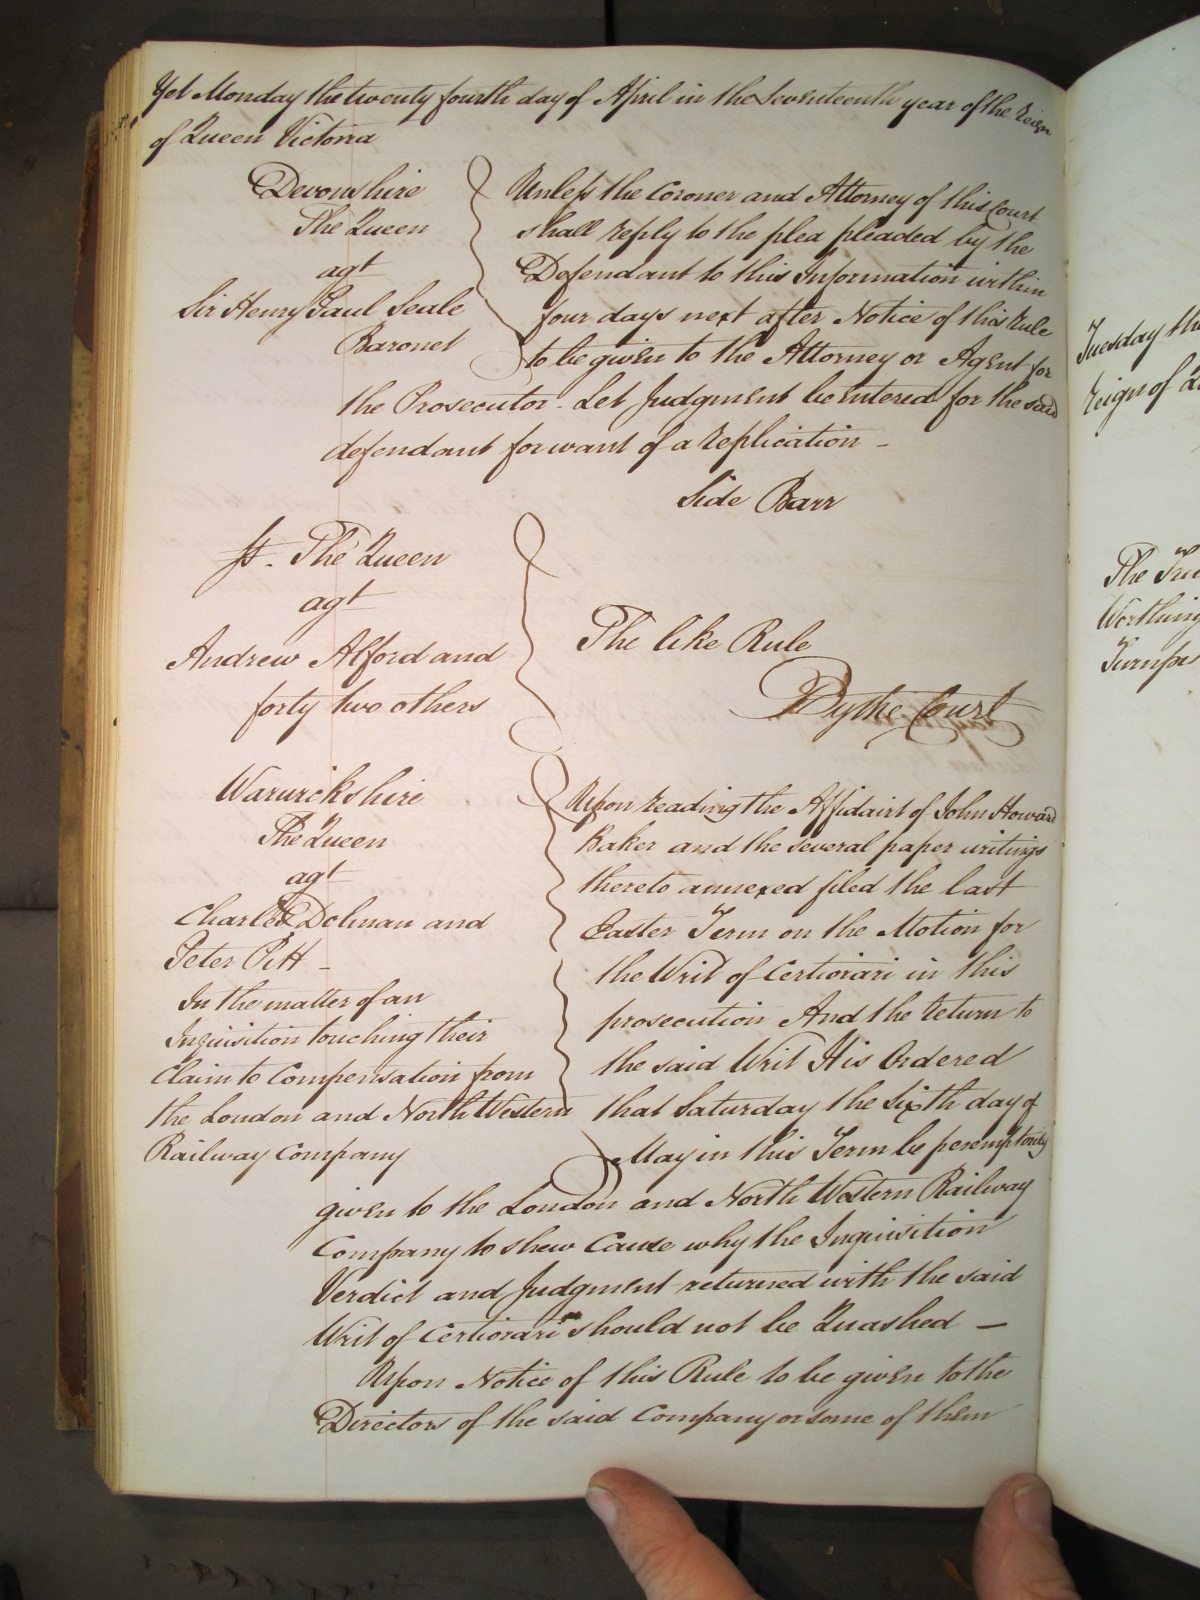 Yet Monday the twenty fourth day of April in the Seventeenth year of the Reign
of Queen Victoria
Devonshire
The Queen
agt
Sir Henry Paul Seale
Baronet
Unless the Coroner and Attorney of this Court
shall reply to the plea pleaded by the
Defendant to this Information within
four days next after Notice of this Rule
to be given to the Attorney or Agent for
the Prosecutor. Let Judgment be entered for the said
defendant for want of a replication -
Side Barr
The Queen
agt
Andrew Alford and
forty two others
The like Rule
By the Court
Warwickshire
The Queen
agt
Charles Dolman and
Peter Pitt -
In the matter of an
Inquisition touching their
Claim to Compensation from
the London and North Western
Railway Company
Upon reading the Affidavit of John Howard
Baker and the several paper writings
thereto annexed filed the last
Easter Term on the Motion for
the Writ of Certiorari in this
prosecution And the return to
the said Writ It is Ordered
that Saturday the Sixth day of
May in this Term be peremptorily
given to the London and North Western Railway
Company to shew Cause why the Inquisition
Verdict and Judgment returned with the said
Writ of Certiorari should not be Quashed —
Upon Notice of this Rule to be given to the
Directors of the said Company or some of them
Tuesday the
Reign of
The
Worthing